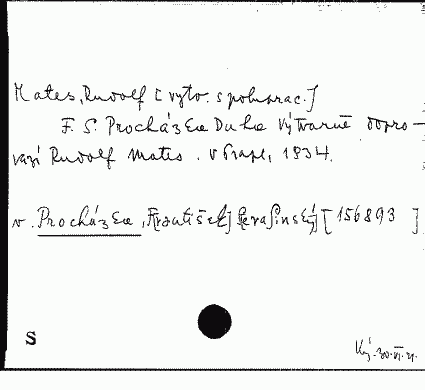 Mates, Rudolf [výtv. spoluprac.]
F. S. Procházka Duha Výtvarně dopro-
vází Rudolf Mates. V Praze, 1934.
v. Procházka, František Serafinský [156893]
S